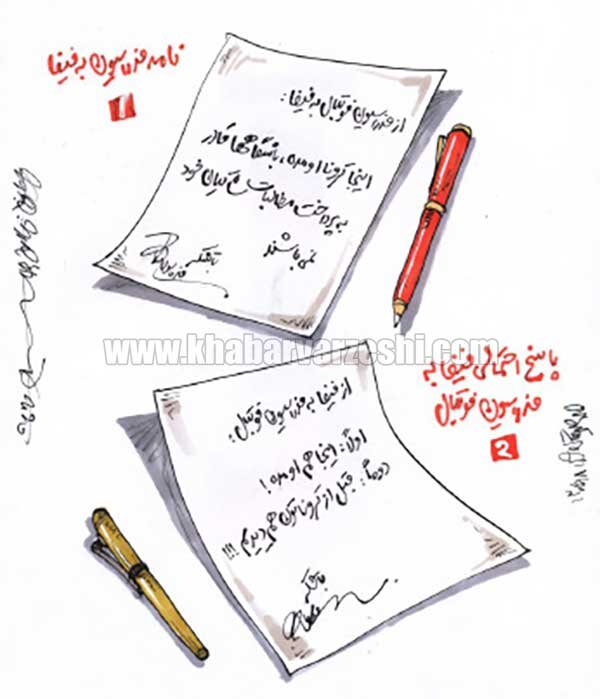 نامه فدراسیون به فیفا
1
از فدراسیون فوتبال به فیفا:
اینجا کرونا اومده، باشگاهها قادر
به پرداخت مطالبات شاکیان خود
نمی باشند
باتشکر
فدراسیون
www.khabarvarzeshi.com
پاسخ احتمالی فیفا به
فدراسیون فوتبال
2
از فیفا به فدراسیون فوتبال:
اولاً: اینجا هم اومده!
دوماً: قبل از کروناتون هم دیدیم!!!
باتشکر